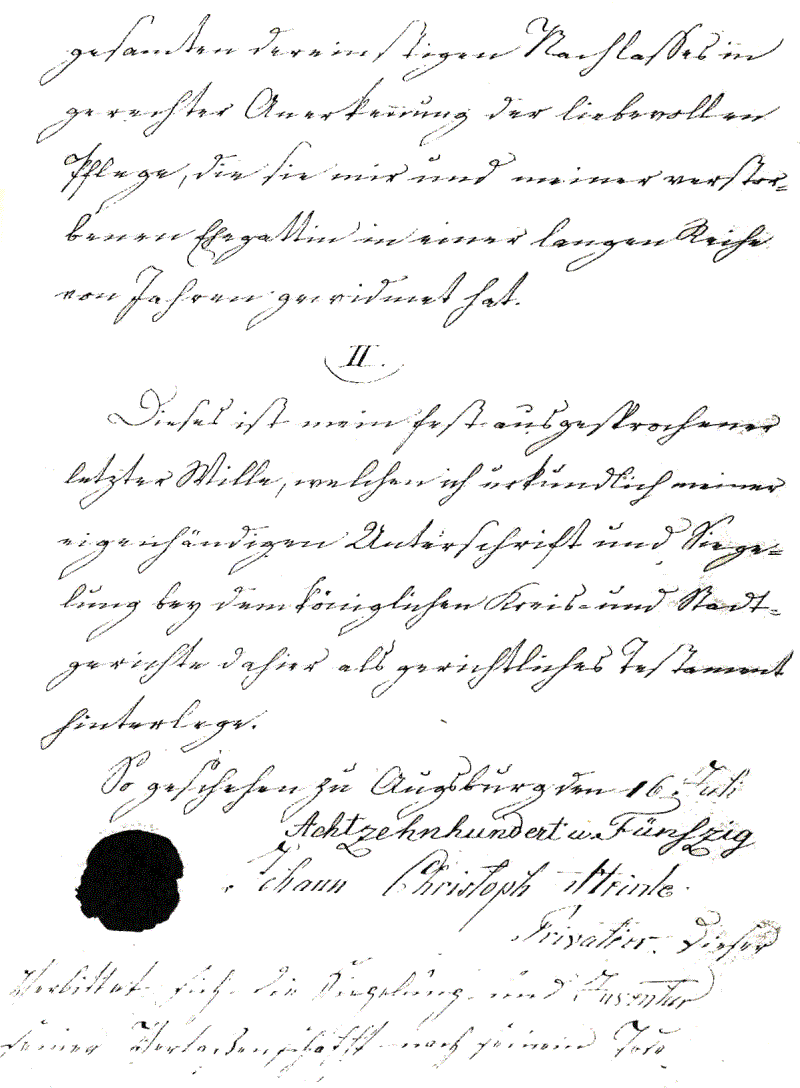 gesamten dereinstigen Nachlasses in
gerechter Anerkennung der liebevollen
Pflege, die sie mir und meiner verstor=
benen Ehegattin in einer langen Reihe
von Jahren gewidmet hat.
II.
Dieses ist mein fest ausgesprochener
letzter Wille, welchen ich urkundlich meiner
eigenhändigen Unterschrift und Siege=
lung bey dem königlichen Kreis- und Stadt-
gerichte dahier als gerichtliches Testament
hinterlege.
So geschehen zu Augsburg den 16 Juli
Achtzehnhundert u. Fünfzig
Johann Christoph
Privatier. Dieser
Verbittet sich die Siegelung und Inventur
seiner Verlassenschafft nach seinem Tode